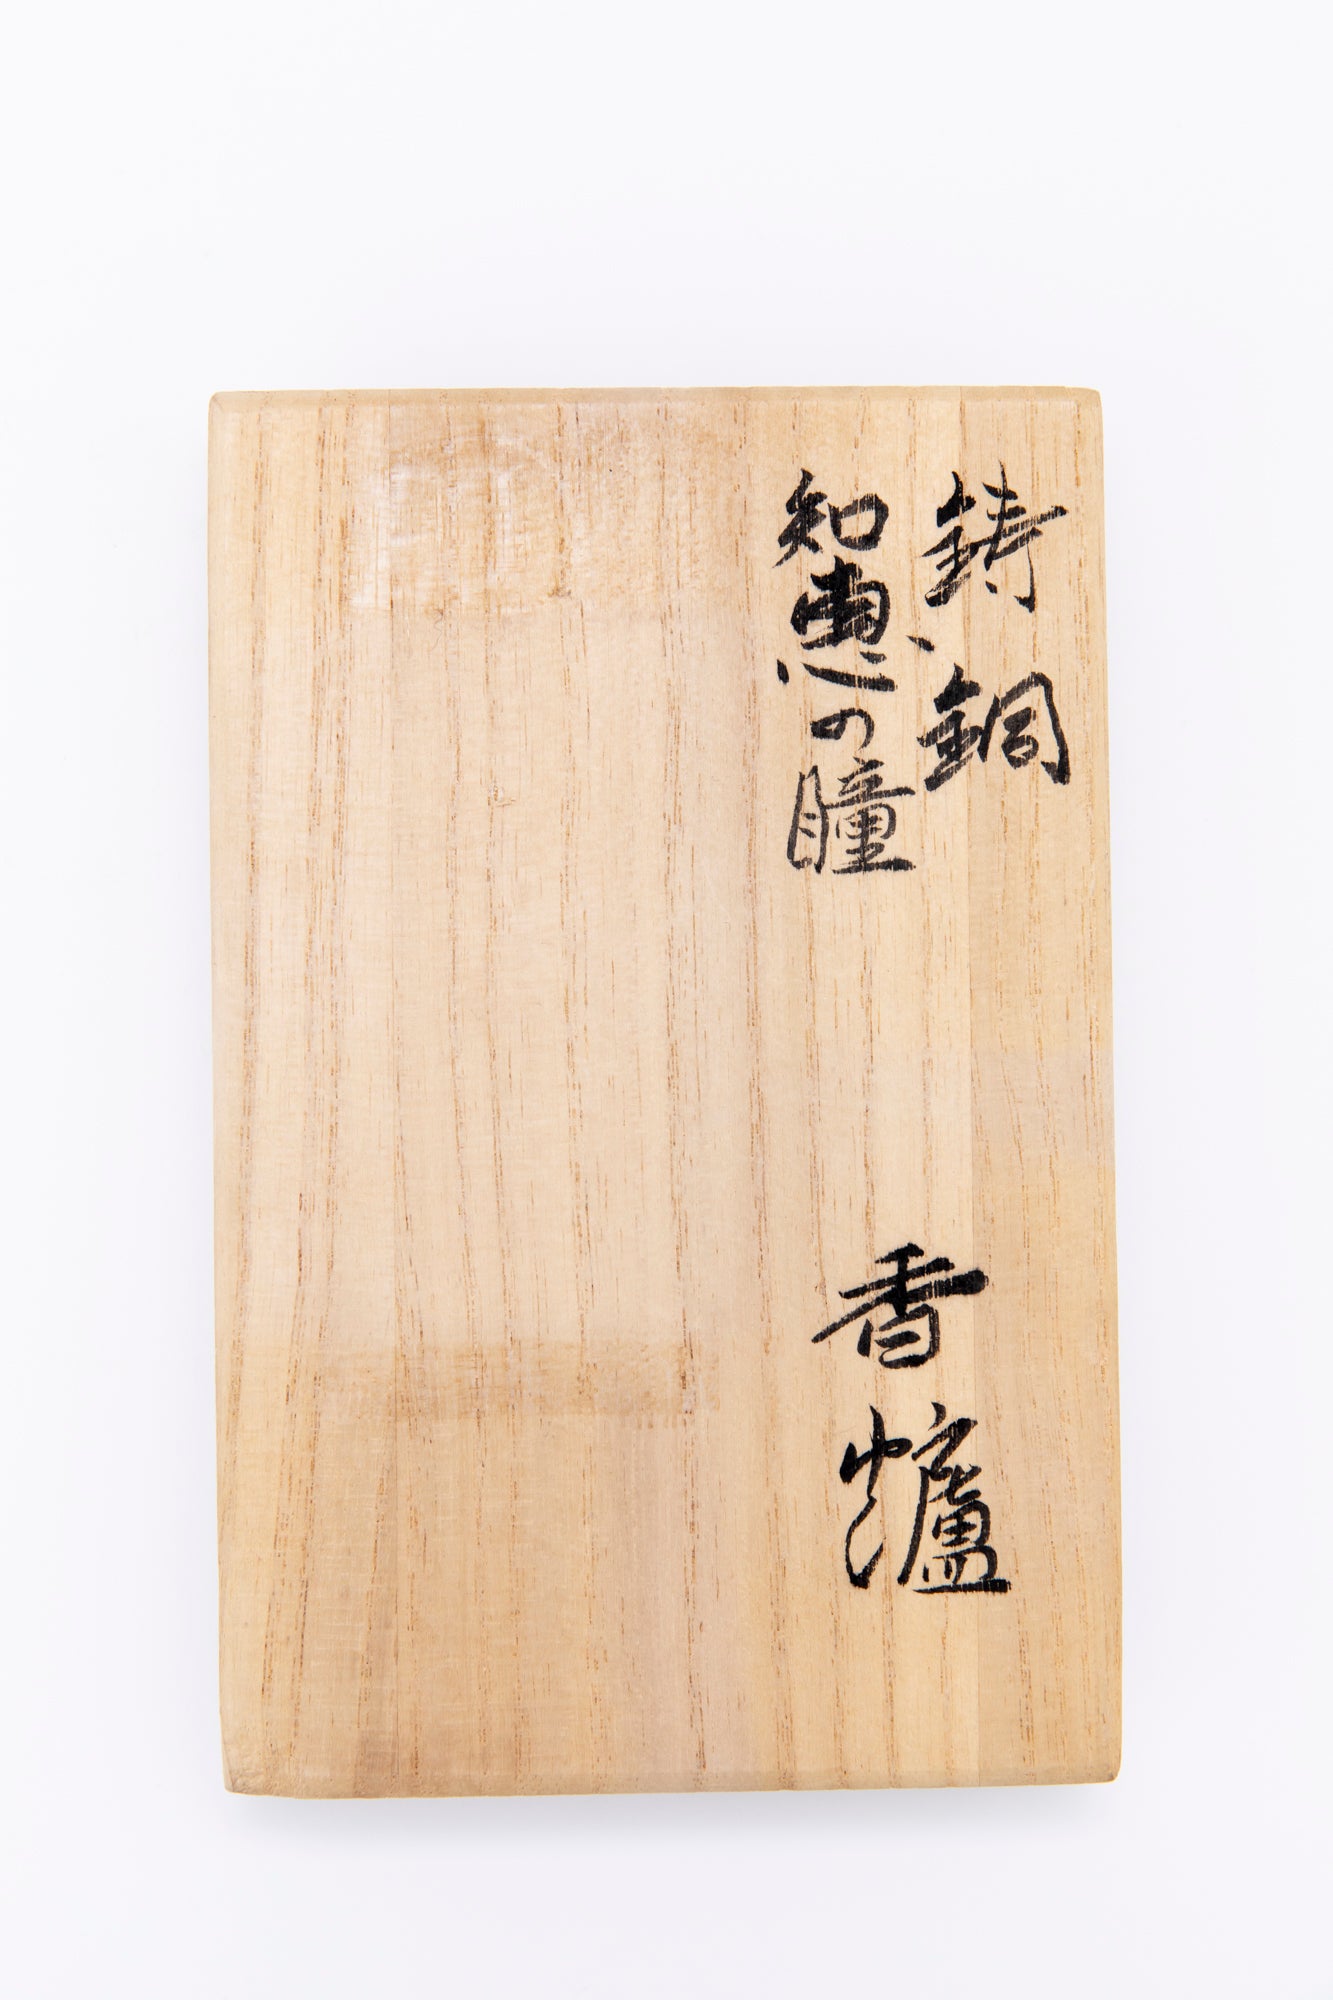 鋳銅
知恵の瞳
香爐